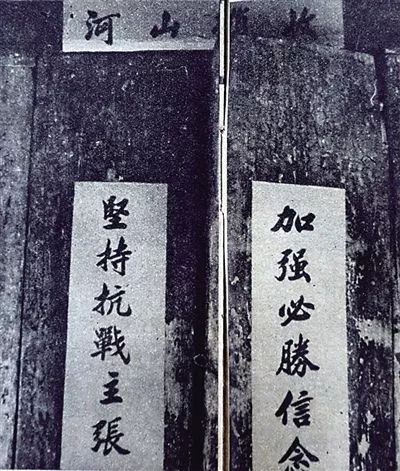 山河
加强必勝信念
堅持抗戰主張